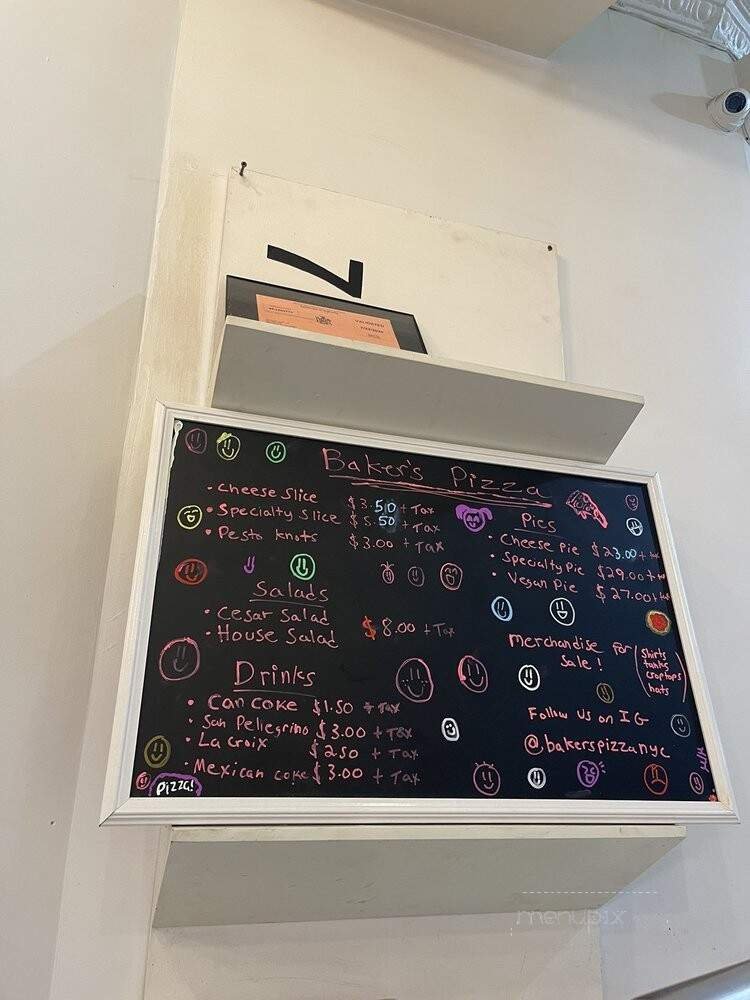 7
VALIDATED
Baker's Pizza
• Cheese Slice $3.50 + Tax
• Specialty Slice $5.50 + Tax
• Pesto knots $3.00 + Tax
Salads
• Cesar Salad
• House Salad $8.00 + Tax
Drinks
• Can Coke $1.50 + Tax
• San Pellegrino $3.00 + Tax
• La croix $2.50 + Tax
• Mexican coke $3.00 + Tax
Pizza!
Pies
• Cheese Pie $23.00 +
• Specialty Pie $29.00 +
• Vegan Pie $27.00 +
Merchandise for Sale!
(Shirts
tanks
croptops
hats)
Follow us on IG
@bakerspizzanyc
menupix